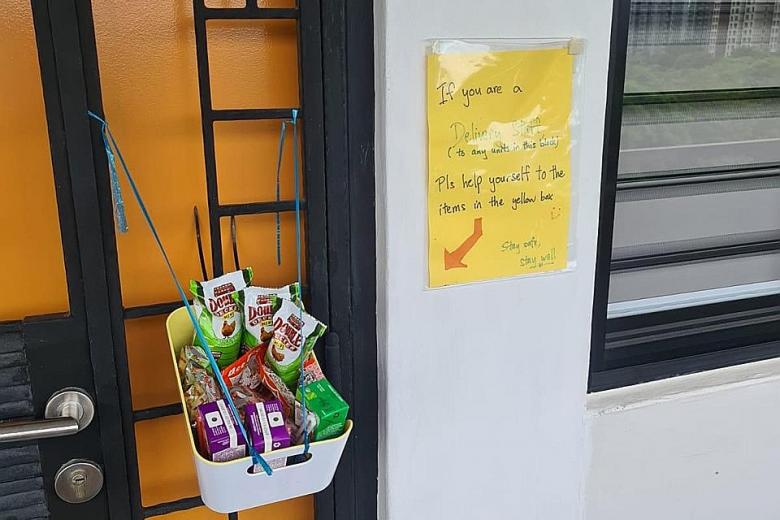 If you are a
Delivery Staff
( to any units in this block)
Pls help yourself to the
items in the yellow box
Stay safe,
stay well